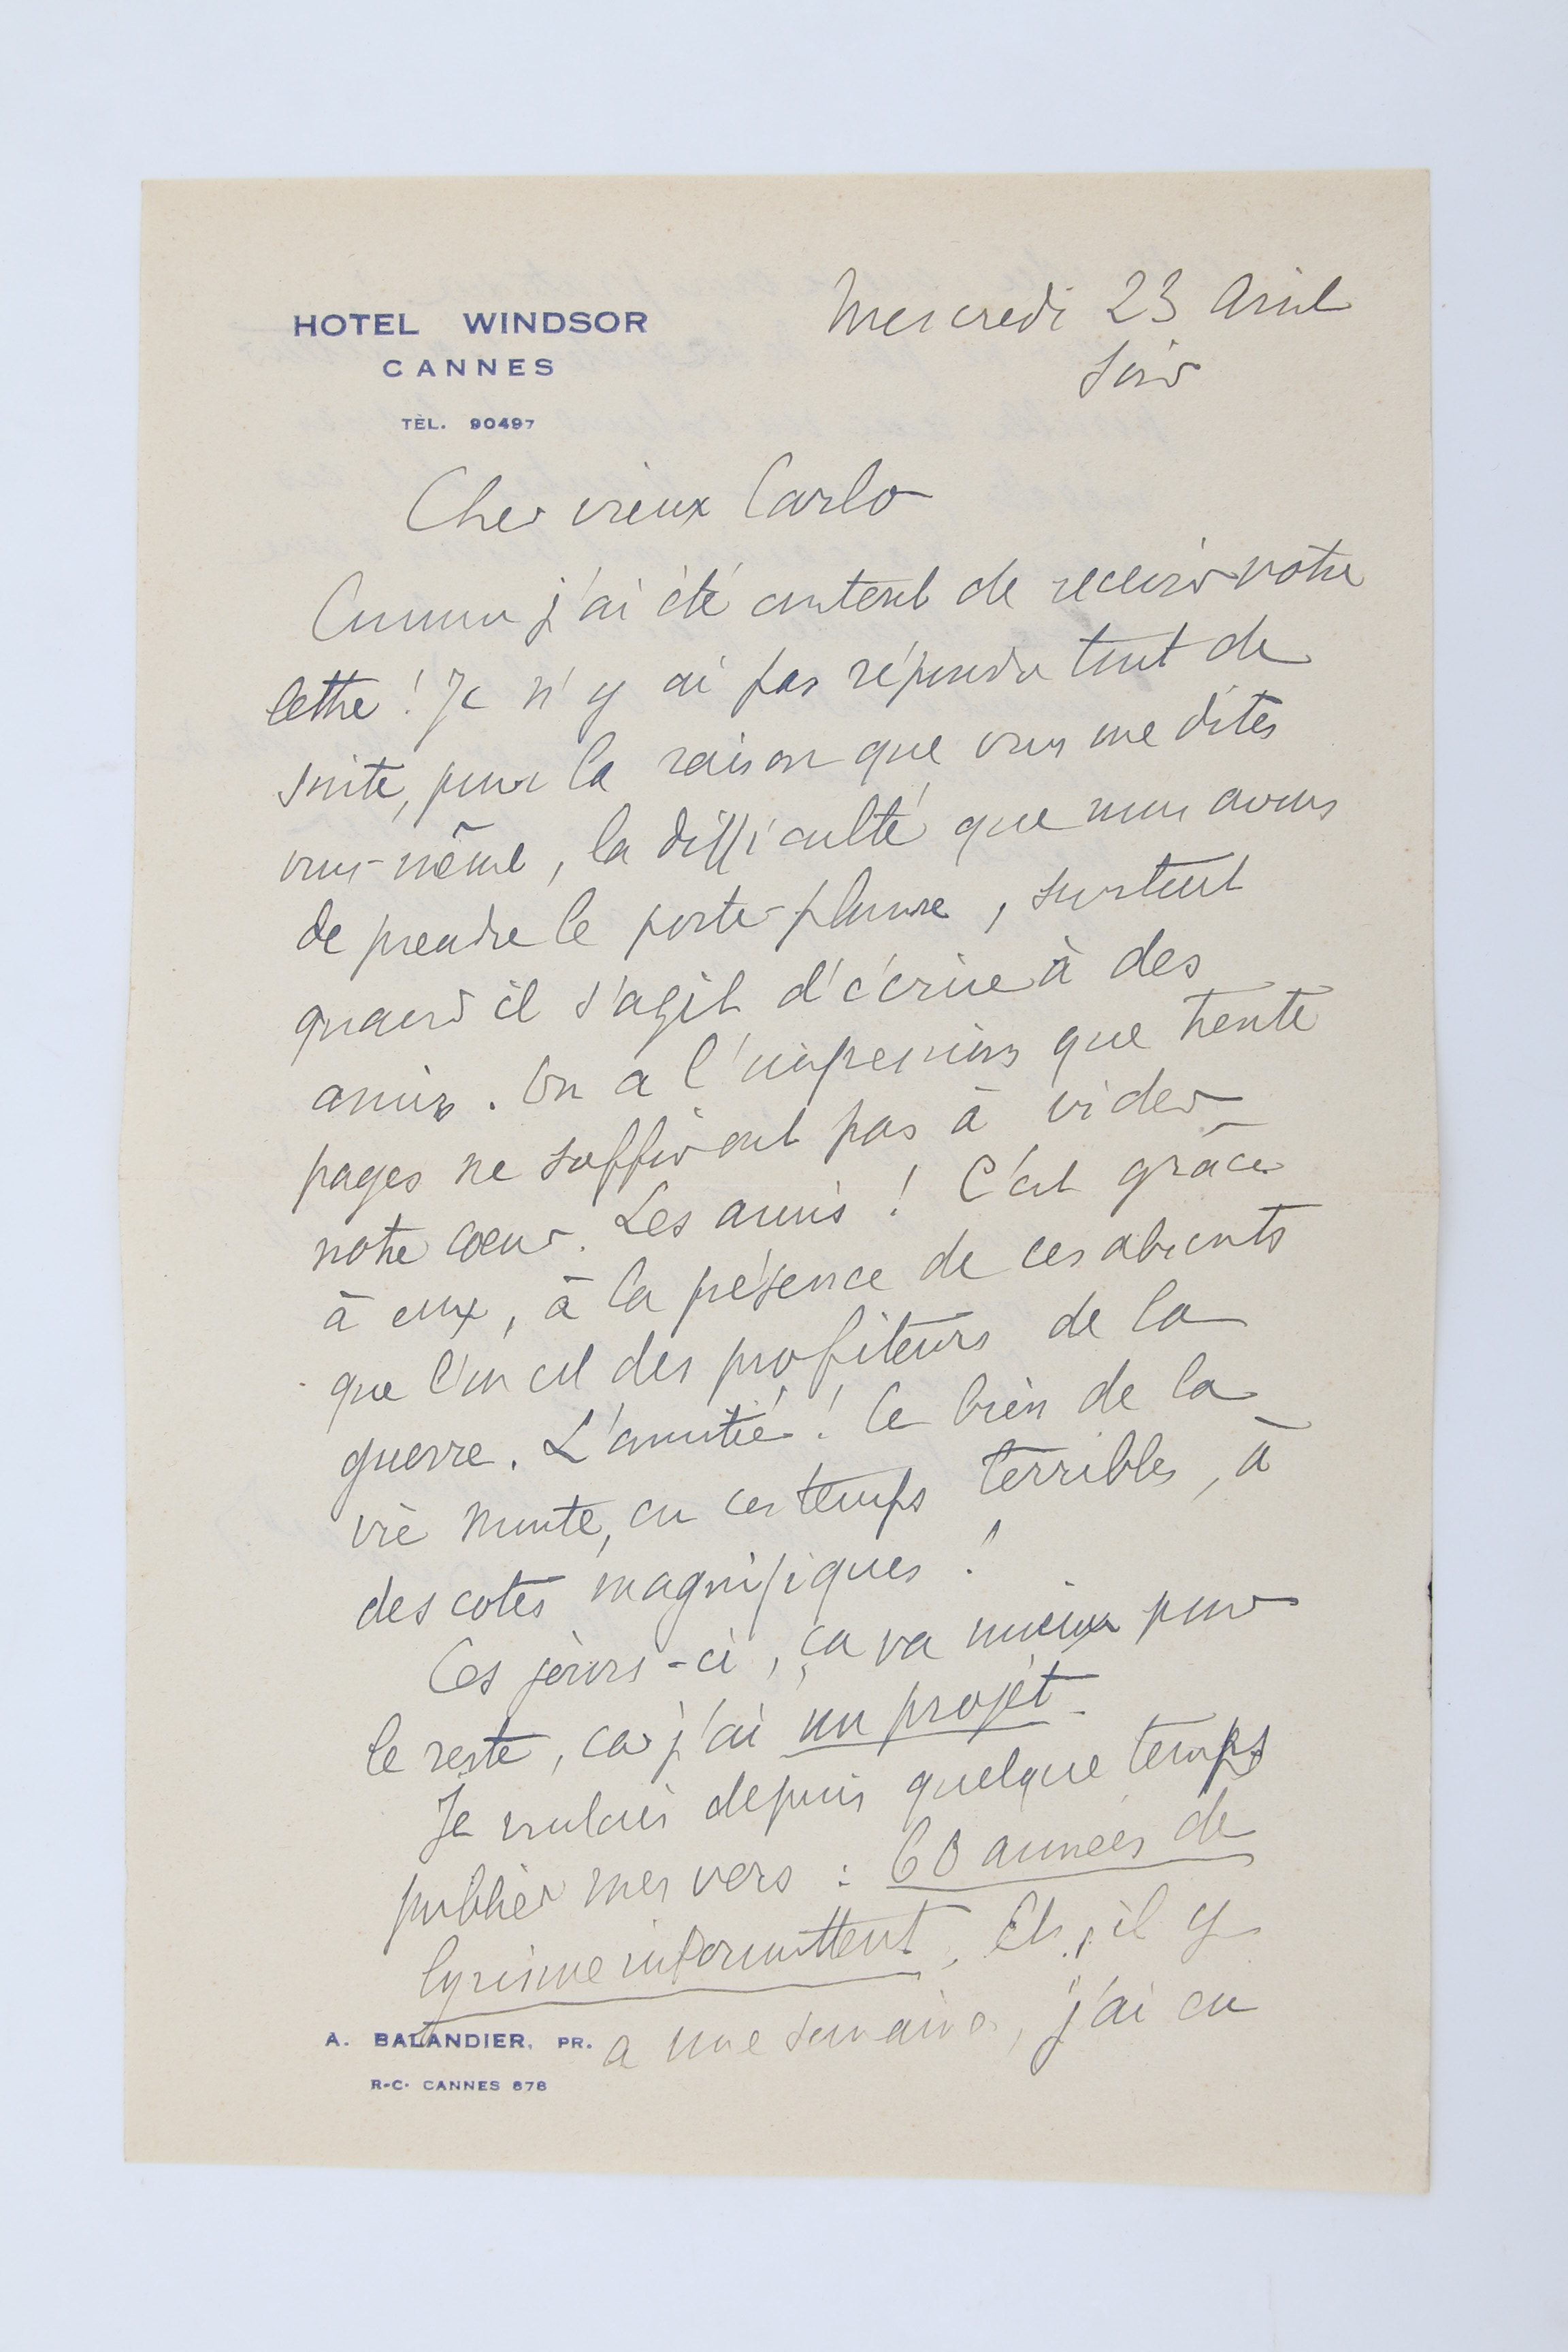 HOTEL WINDSOR
CANNES
TÈL. 90497
Mercredi 23 Avril
soir
Cher vieux Carlo
Comme j'ai été content de recevoir votre
lettre ! Je n'y ai pas répondu tout de
suite, pour la raison que vous me dites
vous-même, la difficulté que nous avons
de prendre le porte-plume, surtout
quand il s'agit d'écrire à des
amis. On a l'impression que trente
pages ne suffiront pas à vider
notre cœur. Les amis ! C'est grâce
à eux, à la présence de ces absents
que l'on est des profiteurs de la
guerre. L'amitié ! Ce bien de la
vie monte, en ces temps terribles, à
des cotes magnifiques !
Ces jours-ci, ça va mieux pour
le reste, car j'ai un projet.
Je voulais depuis quelque temps
publier mes vers : 60 années de
lyrisme intermittent. Et, il y
a une semaine, j'ai eu
A. BALANDIER, PR.
R-C- CANNES 878